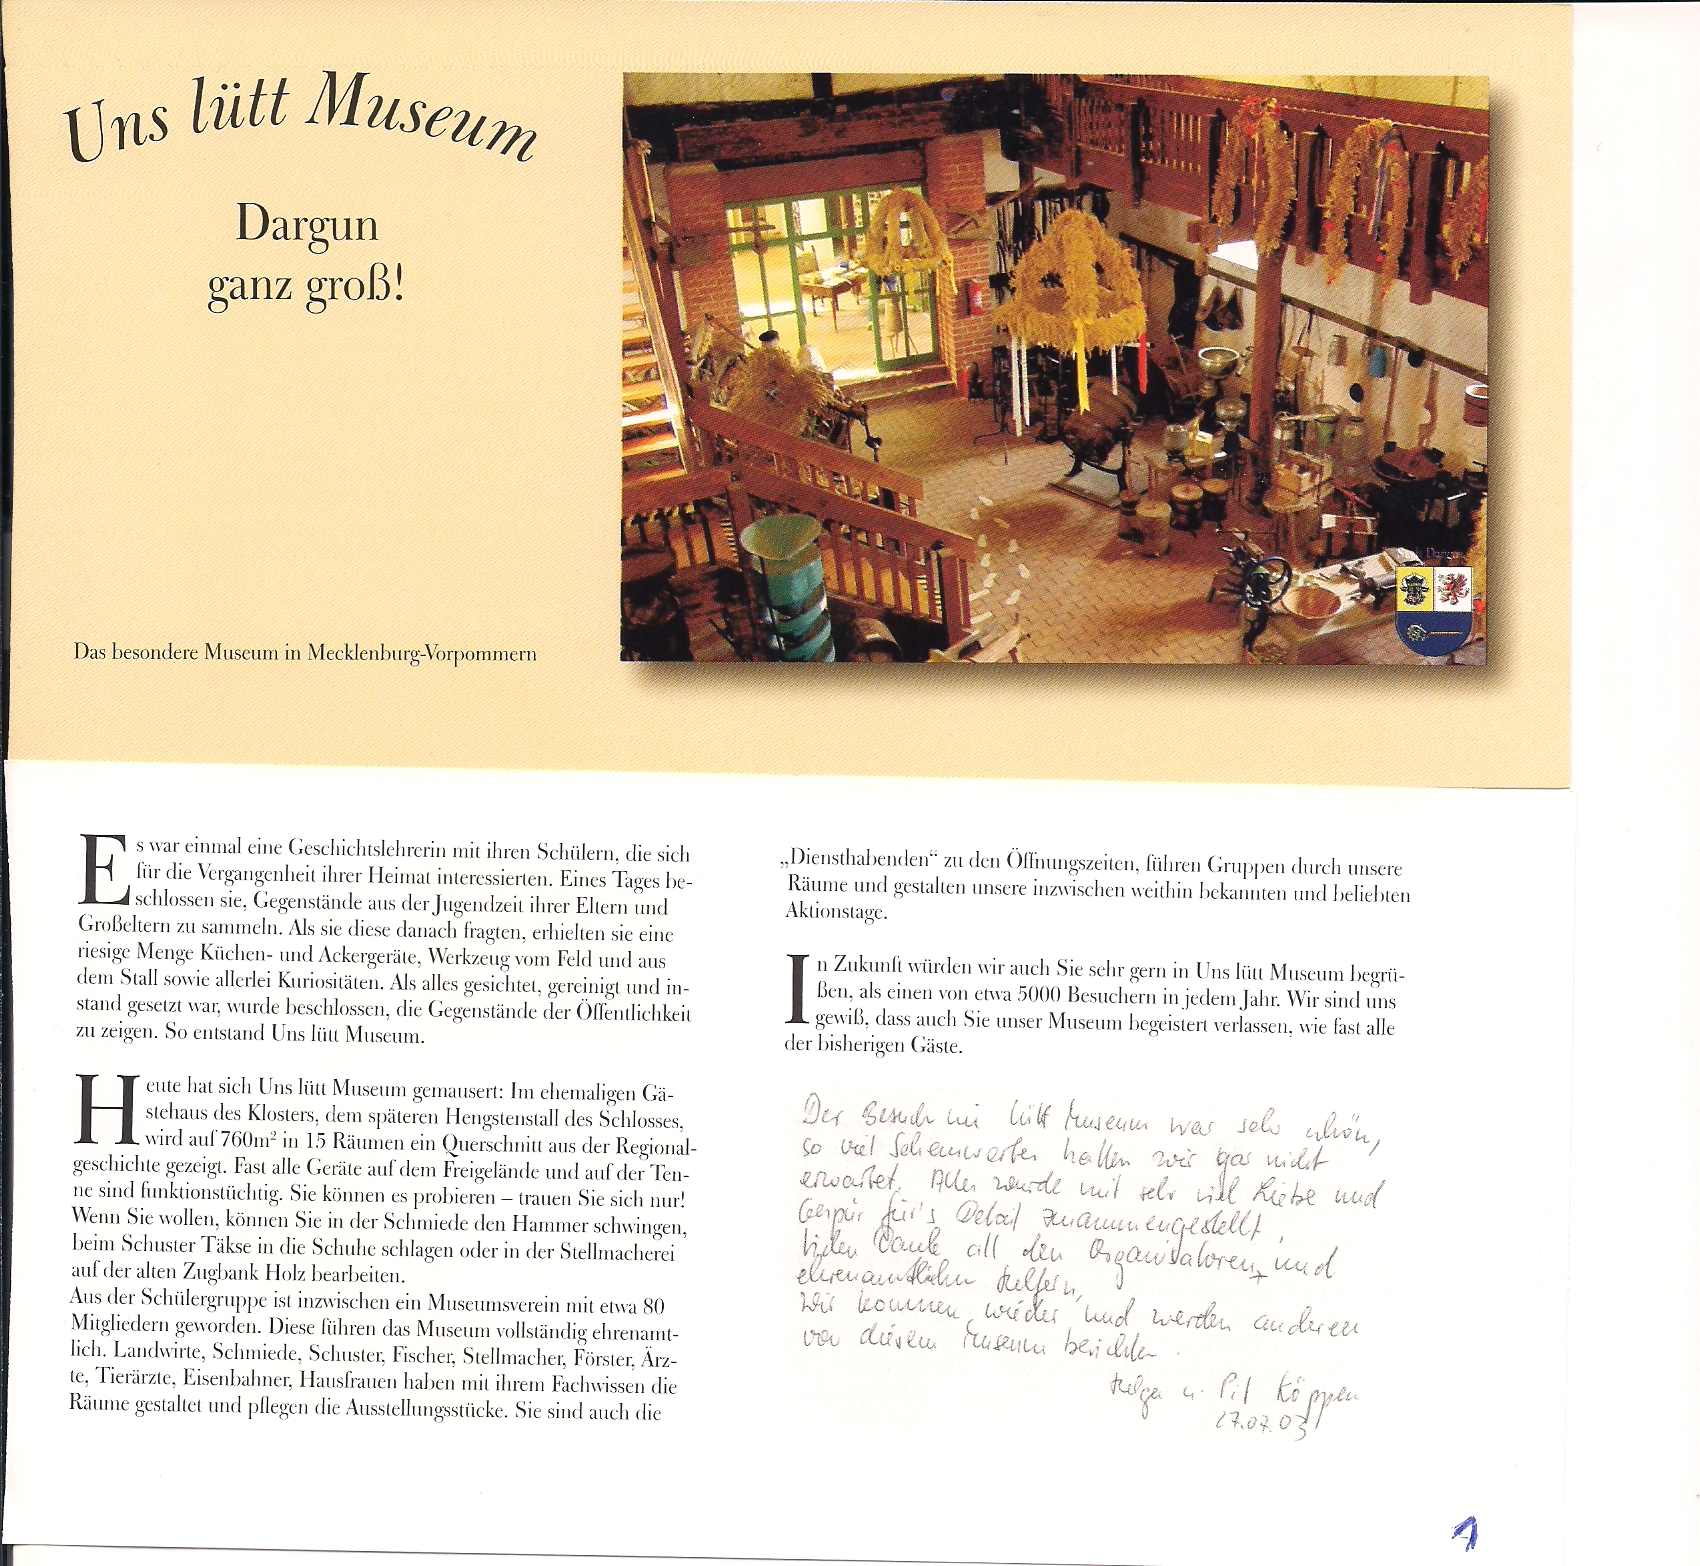 Uns lütt Museum
Dargun
ganz groß!
Das besondere Museum in Mecklenburg-Vorpommern
Stadt Dargun
Es war einmal eine Geschichtslehrerin mit ihren Schülern, die sich
für die Vergangenheit ihrer Heimat interessierten. Eines Tages be-
schlossen sie, Gegenstände aus der Jugendzeit ihrer Eltern und
Großeltern zu sammeln. Als sie diese danach fragten, erhielten sie eine
riesige Menge Küchen- und Ackergeräte, Werkzeug vom Feld und aus
dem Stall sowie allerlei Kuriositäten. Als alles gesichtet, gereinigt und in-
stand gesetzt war, wurde beschlossen, die Gegenstände der Öffentlichkeit
zu zeigen. So entstand Uns lütt Museum.
Heute hat sich Uns lütt Museum gemausert: Im ehemaligen Gä-
stehaus des Klosters, dem späteren Hengstenstall des Schlosses,
wird auf 760m² in 15 Räumen ein Querschnitt aus der Regional-
geschichte gezeigt. Fast alle Geräte auf dem Freigelände und auf der Ten-
ne sind funktionstüchtig. Sie können es probieren – trauen Sie sich nur!
Wenn Sie wollen, können Sie in der Schmiede den Hammer schwingen,
beim Schuster Täkse in die Schuhe schlagen oder in der Stellmacherei
auf der alten Zugbank Holz bearbeiten.
Aus der Schülergruppe ist inzwischen ein Museumsverein mit etwa 80
Mitgliedern geworden. Diese führen das Museum vollständig ehrenamt-
lich. Landwirte, Schmiede, Schuster, Fischer, Stellmacher, Förster, Ärz-
te, Tierärzte, Eisenbahner, Hausfrauen haben mit ihrem Fachwissen die
Räume gestaltet und pflegen die Ausstellungsstücke. Sie sind auch die
„Diensthabenden“ zu den Öffnungszeiten, führen Gruppen durch unsere
Räume und gestalten unsere inzwischen weithin bekannten und beliebten
Aktionstage.
In Zukunft würden wir auch Sie sehr gern in Uns lütt Museum begrü-
ßen, als einen von etwa 5000 Besuchern in jedem Jahr. Wir sind uns
gewiß, dass auch Sie unser Museum begeistert verlassen, wie fast alle
der bisherigen Gäste.
Der Besuch im lütt Museum war sehr schön,
so viel Sehenswertes hatten wir gar nicht
erwartet. Alles wurde mit sehr viel Liebe und
Gespür für's Detail zusammengestellt.
Vielen Dank all den Organisatoren und
ehrenamtlichen Helfern,
Wir kommen wieder und werden anderen
von diesem Museum berichten.
Helga u. Pit Köppen
27.07.03
1